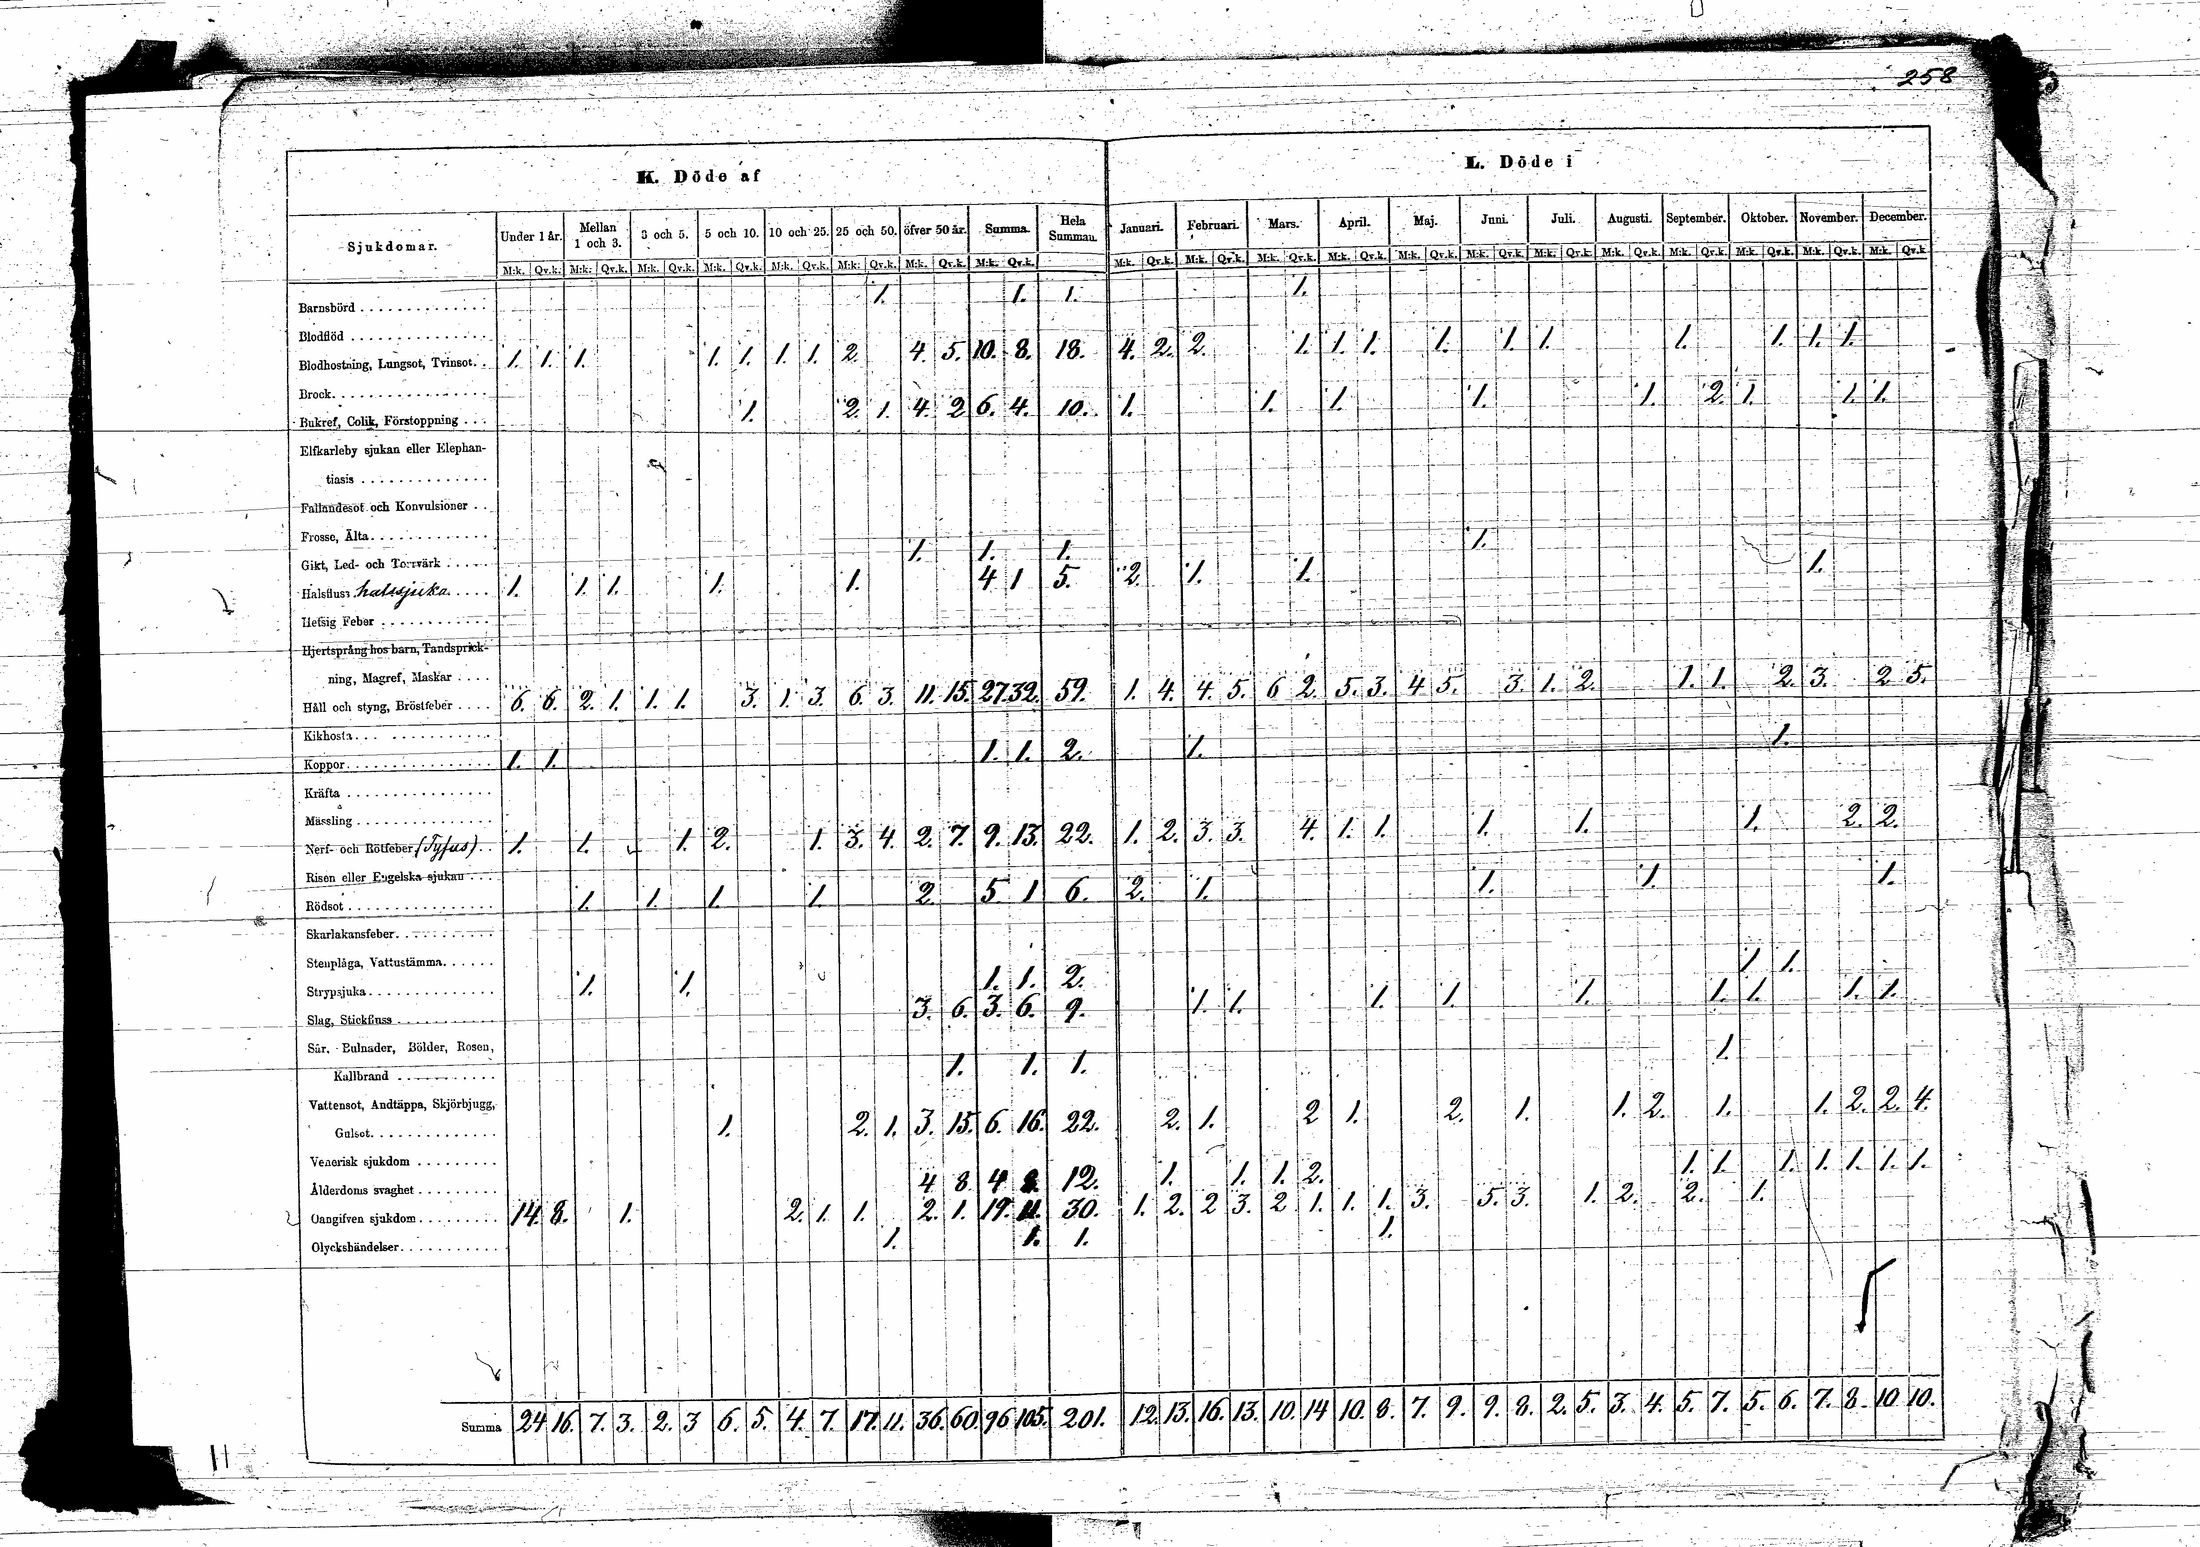 258
K. Döde af
L. Döde i
Sjukdomar. Under 1 år. Mellan 1 och 3. 3 och 5. 5 och 10. 10 och 25. 25 och 50. öfver 50 år. Summa. Hela Summan. Januari. Februari. Mars. April. Maj. Juni. Juli. Augusti. September. Oktober. November. December.
M:k. Qv.k. M:k. Qv.k. M:k. Qv.k. M:k. Qv.k. M:k. Qv.k. M:k. Qv.k. M:k. Qv.k. M:k. Qv.k. M:k. Qv.k. M:k. Qv.k. M:k. Qv.k. M:k. Qv.k. M:k. Qv.k. M:k. Qv.k. M:k. Qv.k. M:k. Qv.k. M:k. Qv.k. M:k. Qv.k. M:k. Qv.k. M:k. Qv.k.
Barnsbörd 1. 1. 1. 1.
Blodflöd
Blodhostning, Lungsot, Tvinsot. 1. 1. 1. 1. 1. 1. 1. 2. 4. 5. 10. 8. 18. 4. 2. 2. 1. 1. 1. 1. 1. 1. 1. 1. 1. 1.
Brock
Bukref, Colik, Förstoppning 1. 2. 1. 4. 2 6. 4. 10. 1. 1. 1. 1. 1. 2. 1. 1. 1.
Elfkarleby sjukan eller Elephan-
tiasis
Fallandesot och Konvulsioner
Frosse, Älta
Gikt, Led- och Torrvärk 1. 1. 1. 1.
Halsfluss halssjuka 1. 1. 1. 1. 1. 4 1 5. 2. 1. 1. 1.
Hetsig Feber
Hjertsprång hos barn, Tandsprick-
ning, Magref, Maskar
Håll och styng, Bröstfeber 6. 6. 2. 1. 1. 1. 3. 1. 3. 6. 3. 11. 15. 27. 32. 59. 1. 4. 4. 5. 6 2. 5. 3. 4 5. 3. 1. 2. 1. 1. 2. 3. 2 5.
Kikhosta
Koppor 1. 1. 1. 1. 2. 1. 1.
Kräfta
Mässling
Nerf- och Rötfeber (Tyfus) 1. 1. 1. 2. 1. 3. 4. 2. 7. 9. 13. 22. 1. 2. 3. 3. 4. 1. 1. 1. 1. 1. 2. 2.
Risen eller Engelska sjukan
Rödsot 1. 1. 1. 1. 2. 5 1 6. 2. 1. 1. 1. 1.
Skarlakansfeber
Stenplåga, Vattustämma
Strypsjuka 1. 1. 1. 1. 2. 1. 1.
Slag, Stickfluss 3. 6. 3. 6. 9. 1. 1. 1. 1. 1. 1. 1. 1. 1.
Sår, Bulnader, Bölder, Rosen,
Kallbrand 1. 1. 1. 1.
Vattensot, Andtäppa, Skjörbjugg,
Gulsot 1. 2. 1. 3. 15. 6. 16. 22. 2. 1. 2 1. 2. 1. 1. 2. 1. 1. 2. 2. 4.
Venerisk sjukdom
Ålderdoms svaghet 4 8. 4 8. 12. 1. 1. 1. 2. 1. 1. 1. 1. 1. 1. 1.
Oangifven sjukdom 14. 8. 1. 2. 1. 1. 2. 1. 19. 11. 30. 1. 2. 2 3. 2 1. 1. 1. 3. 5. 3. 1. 2. 2. 1.
Olyckshändelser 1. 1. 1. 1.
Summa 24 16. 7. 3. 2. 3 6. 5. 4. 7. 17. 11. 36. 60. 96 105. 201. 12. 13. 16. 13. 10. 14 10. 8. 7. 9. 9. 8. 2. 5. 3. 4. 5. 7. 5. 6. 7. 8. 10 10.